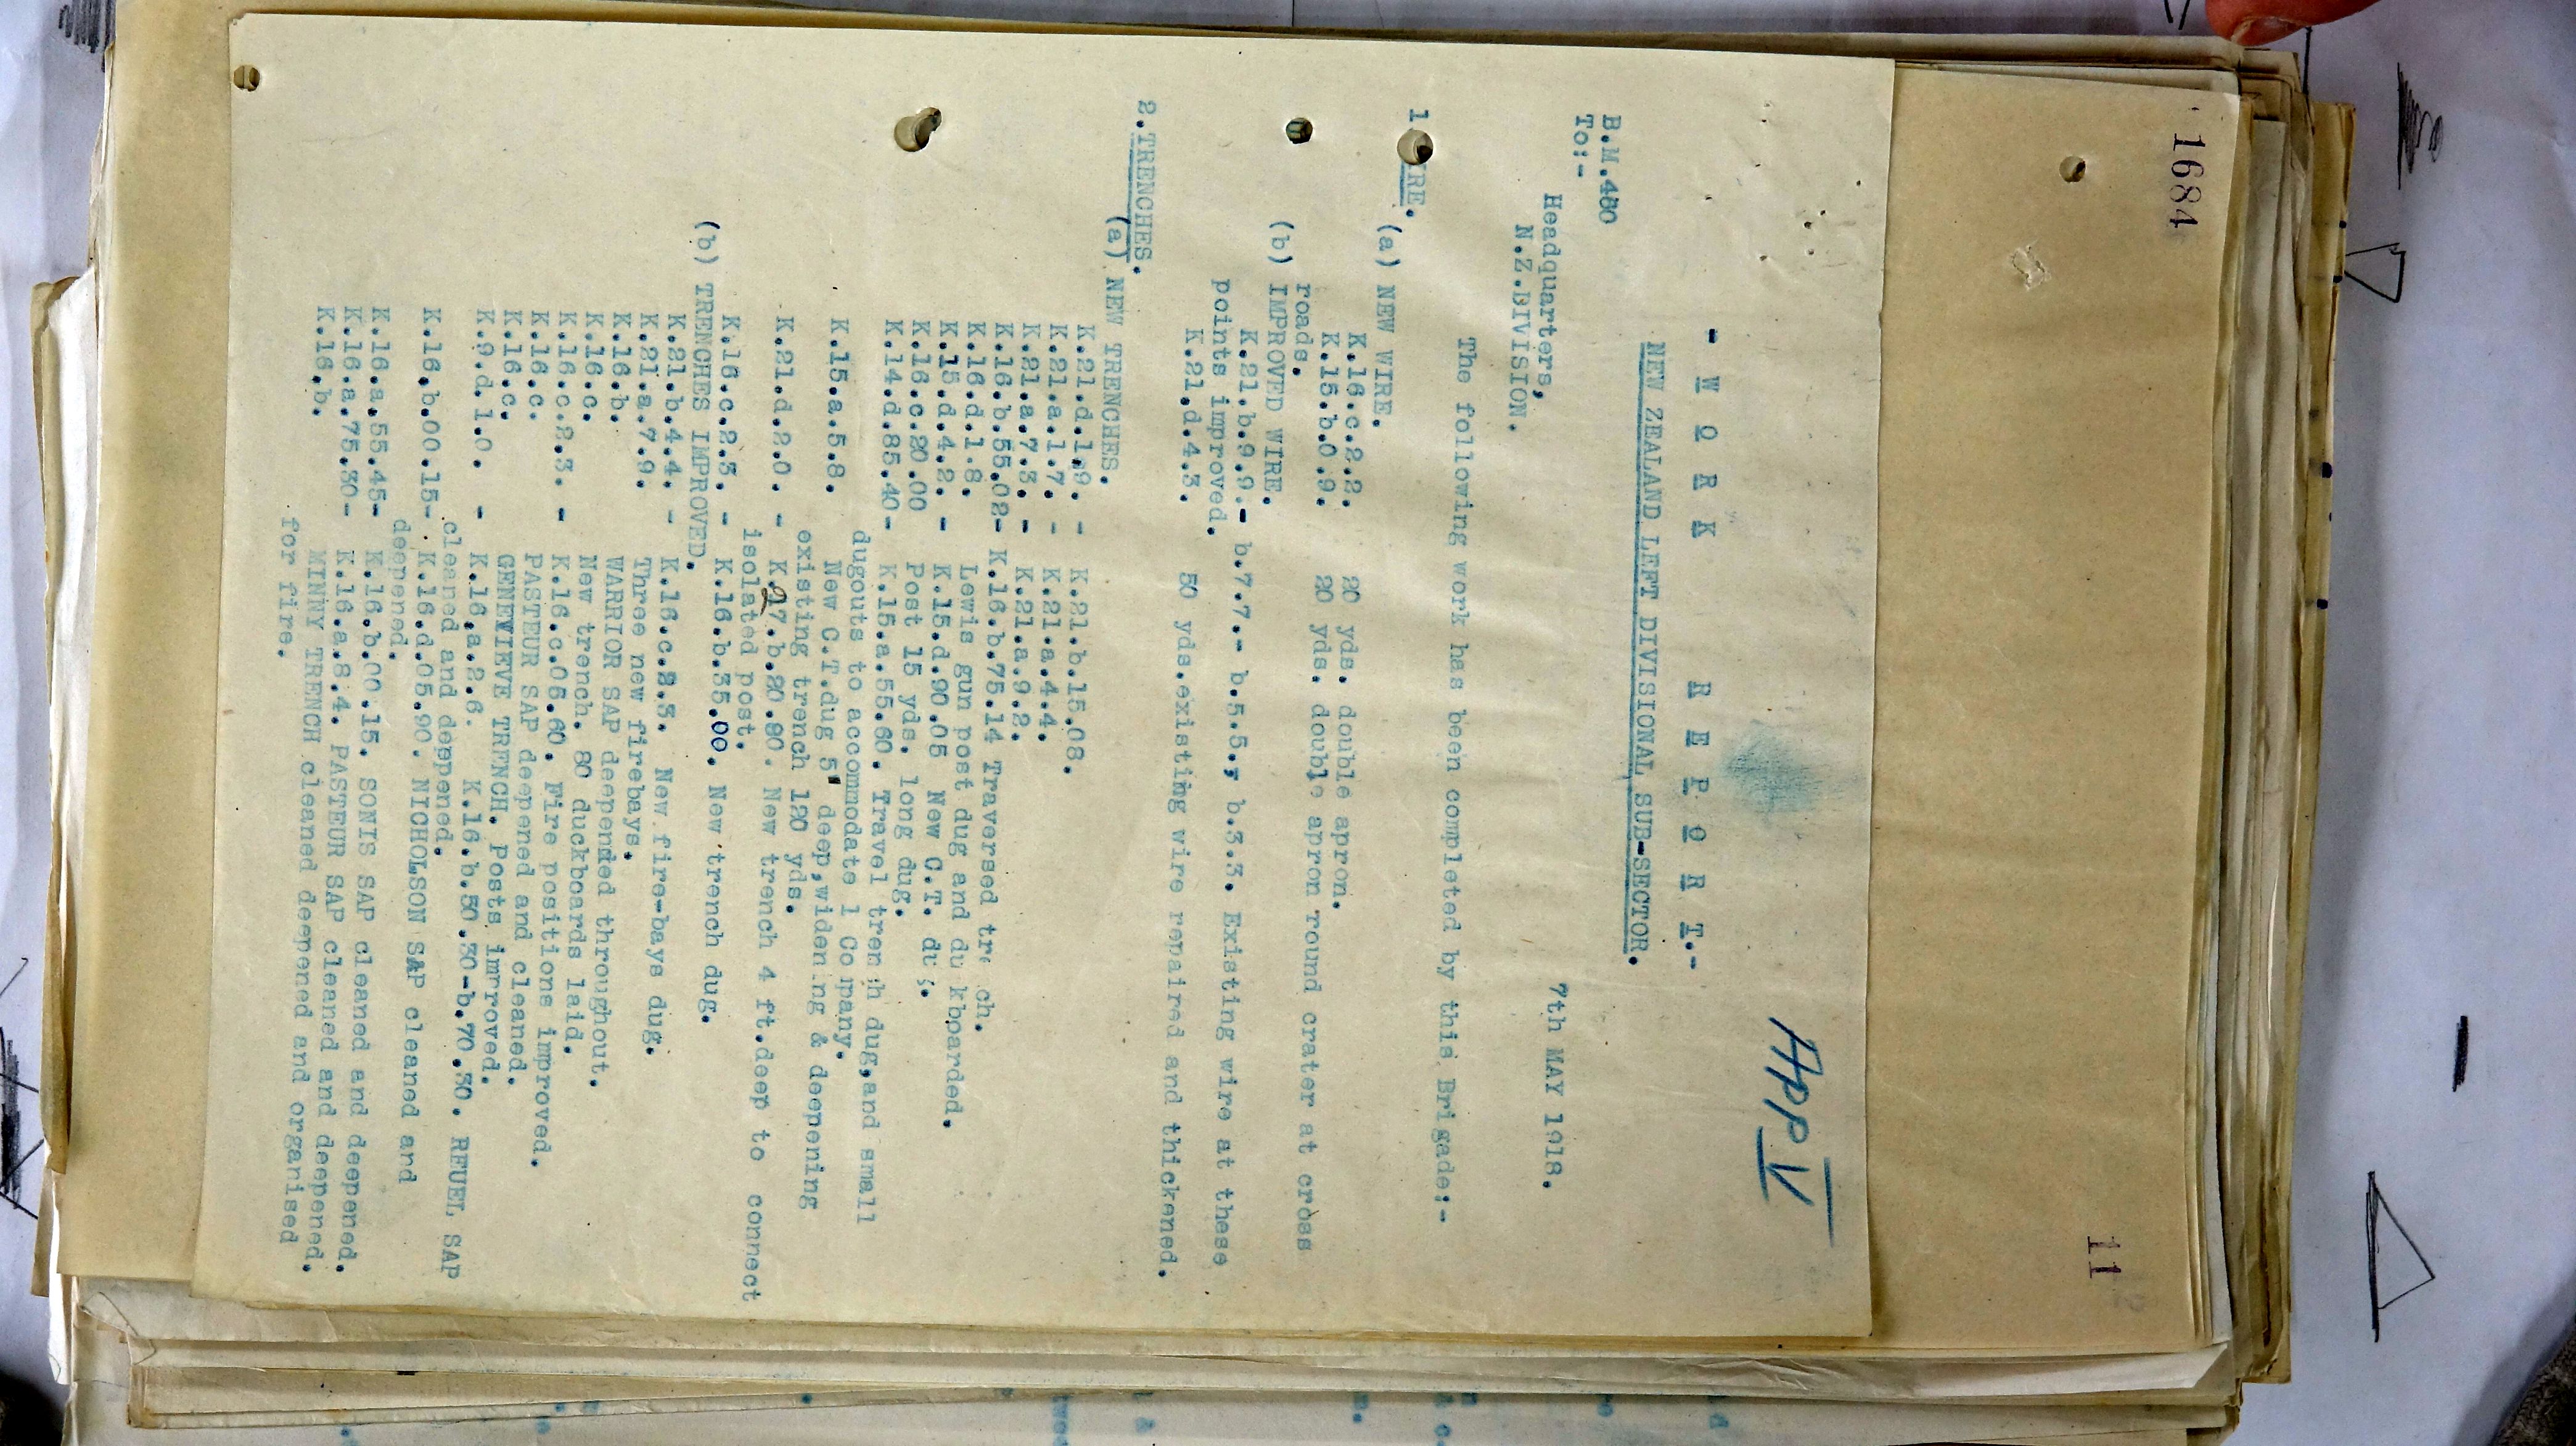 1684
11
App V
- W O R K   R E P O R T.-
NEW ZEALAND LEFT DIVISIONAL SUB-SECTOR.
B.M.480
To:-
Headquarters,   7th MAY 1918.
N.Z.DIVISION.
The following work has been completed by this Brigade:-
1. IRE.
(a) NEW WIRE.
K.16.c.2.2.   20 yds. double apron.
K.15.b.0.9.   20 yds. double apron round crater at cross
roads.
(b) IMPROVED WIRE.
K.21.b.9.9.- b.7.7.- b.5.5., b.3.3. Existing wire at these
points improved.
K.21.d.4.3.   50 yds.existing wire repaired and thickened.
2.TRENCHES.
(a) NEW TRENCHES.
K.21.d.1.9. - K.21.b.15.08.
K.21.a.1.7. - K.21.a.4.4.
K.21.a.7.3. - K.21.a.9.2.
K.16.b.55.02- K.16.b.75.14 Traversed tre ch.
K.16.d.1.8.   Lewis gun post dug and du kboarded.
K.15.d.4.2. - K.15.d.90.05 New C.T. dug.
K.16.c.20.00   Post 15 yds. long dug.
K.14.d.85.40- K.15.a.55.60. Travel trench dug,and small
dugouts to accommodate 1 Company.
K.15.a.5.8.   New C.T.dug 5' deep,widening & deepening
existing trench 120 yds.
K.21.d.2.0. - K.27.b.20.80. New trench 4 ft.deep to connect
isolated post.
K.16.c.2.3. - K.16.b.35.00. New trench dug.
(b) TRENCHES IMPROVED.
K.21.b.4.4. - K.16.c.2.3. New fire-bays dug.
K.21.a.7.9.   Three new firebays.
K.16.b.   WARRIOR SAP deepended throughout.
K.16.c.   New trench. 80 duckboards laid.
K.16.c.2.3. - K.16.c.05.60. Fire positions improved.
K.16.c.   PASTEUR SAP deepened and cleaned.
K.16.c.   GENEVIEVE TRENCH. Posts improved.
K.9.d.1.0. - K.16.a.2.6. K.16.b.50.30-b.70.30. REUEL SAP
cleaned and deepened.
K.16.b.00.15- K.16.d.05.90. NICHOLSON SAP cleaned and
deepened.
K.16.a.55.45- K.16.b.00.15. SONIS SAP cleaned and deepened.
K.16.a.75.30- K.16.a.8.4. PASTEUR SAP cleaned and deepened.
K.16.b.   MINNY TRENCH cleaned deepened and organised
for fire.